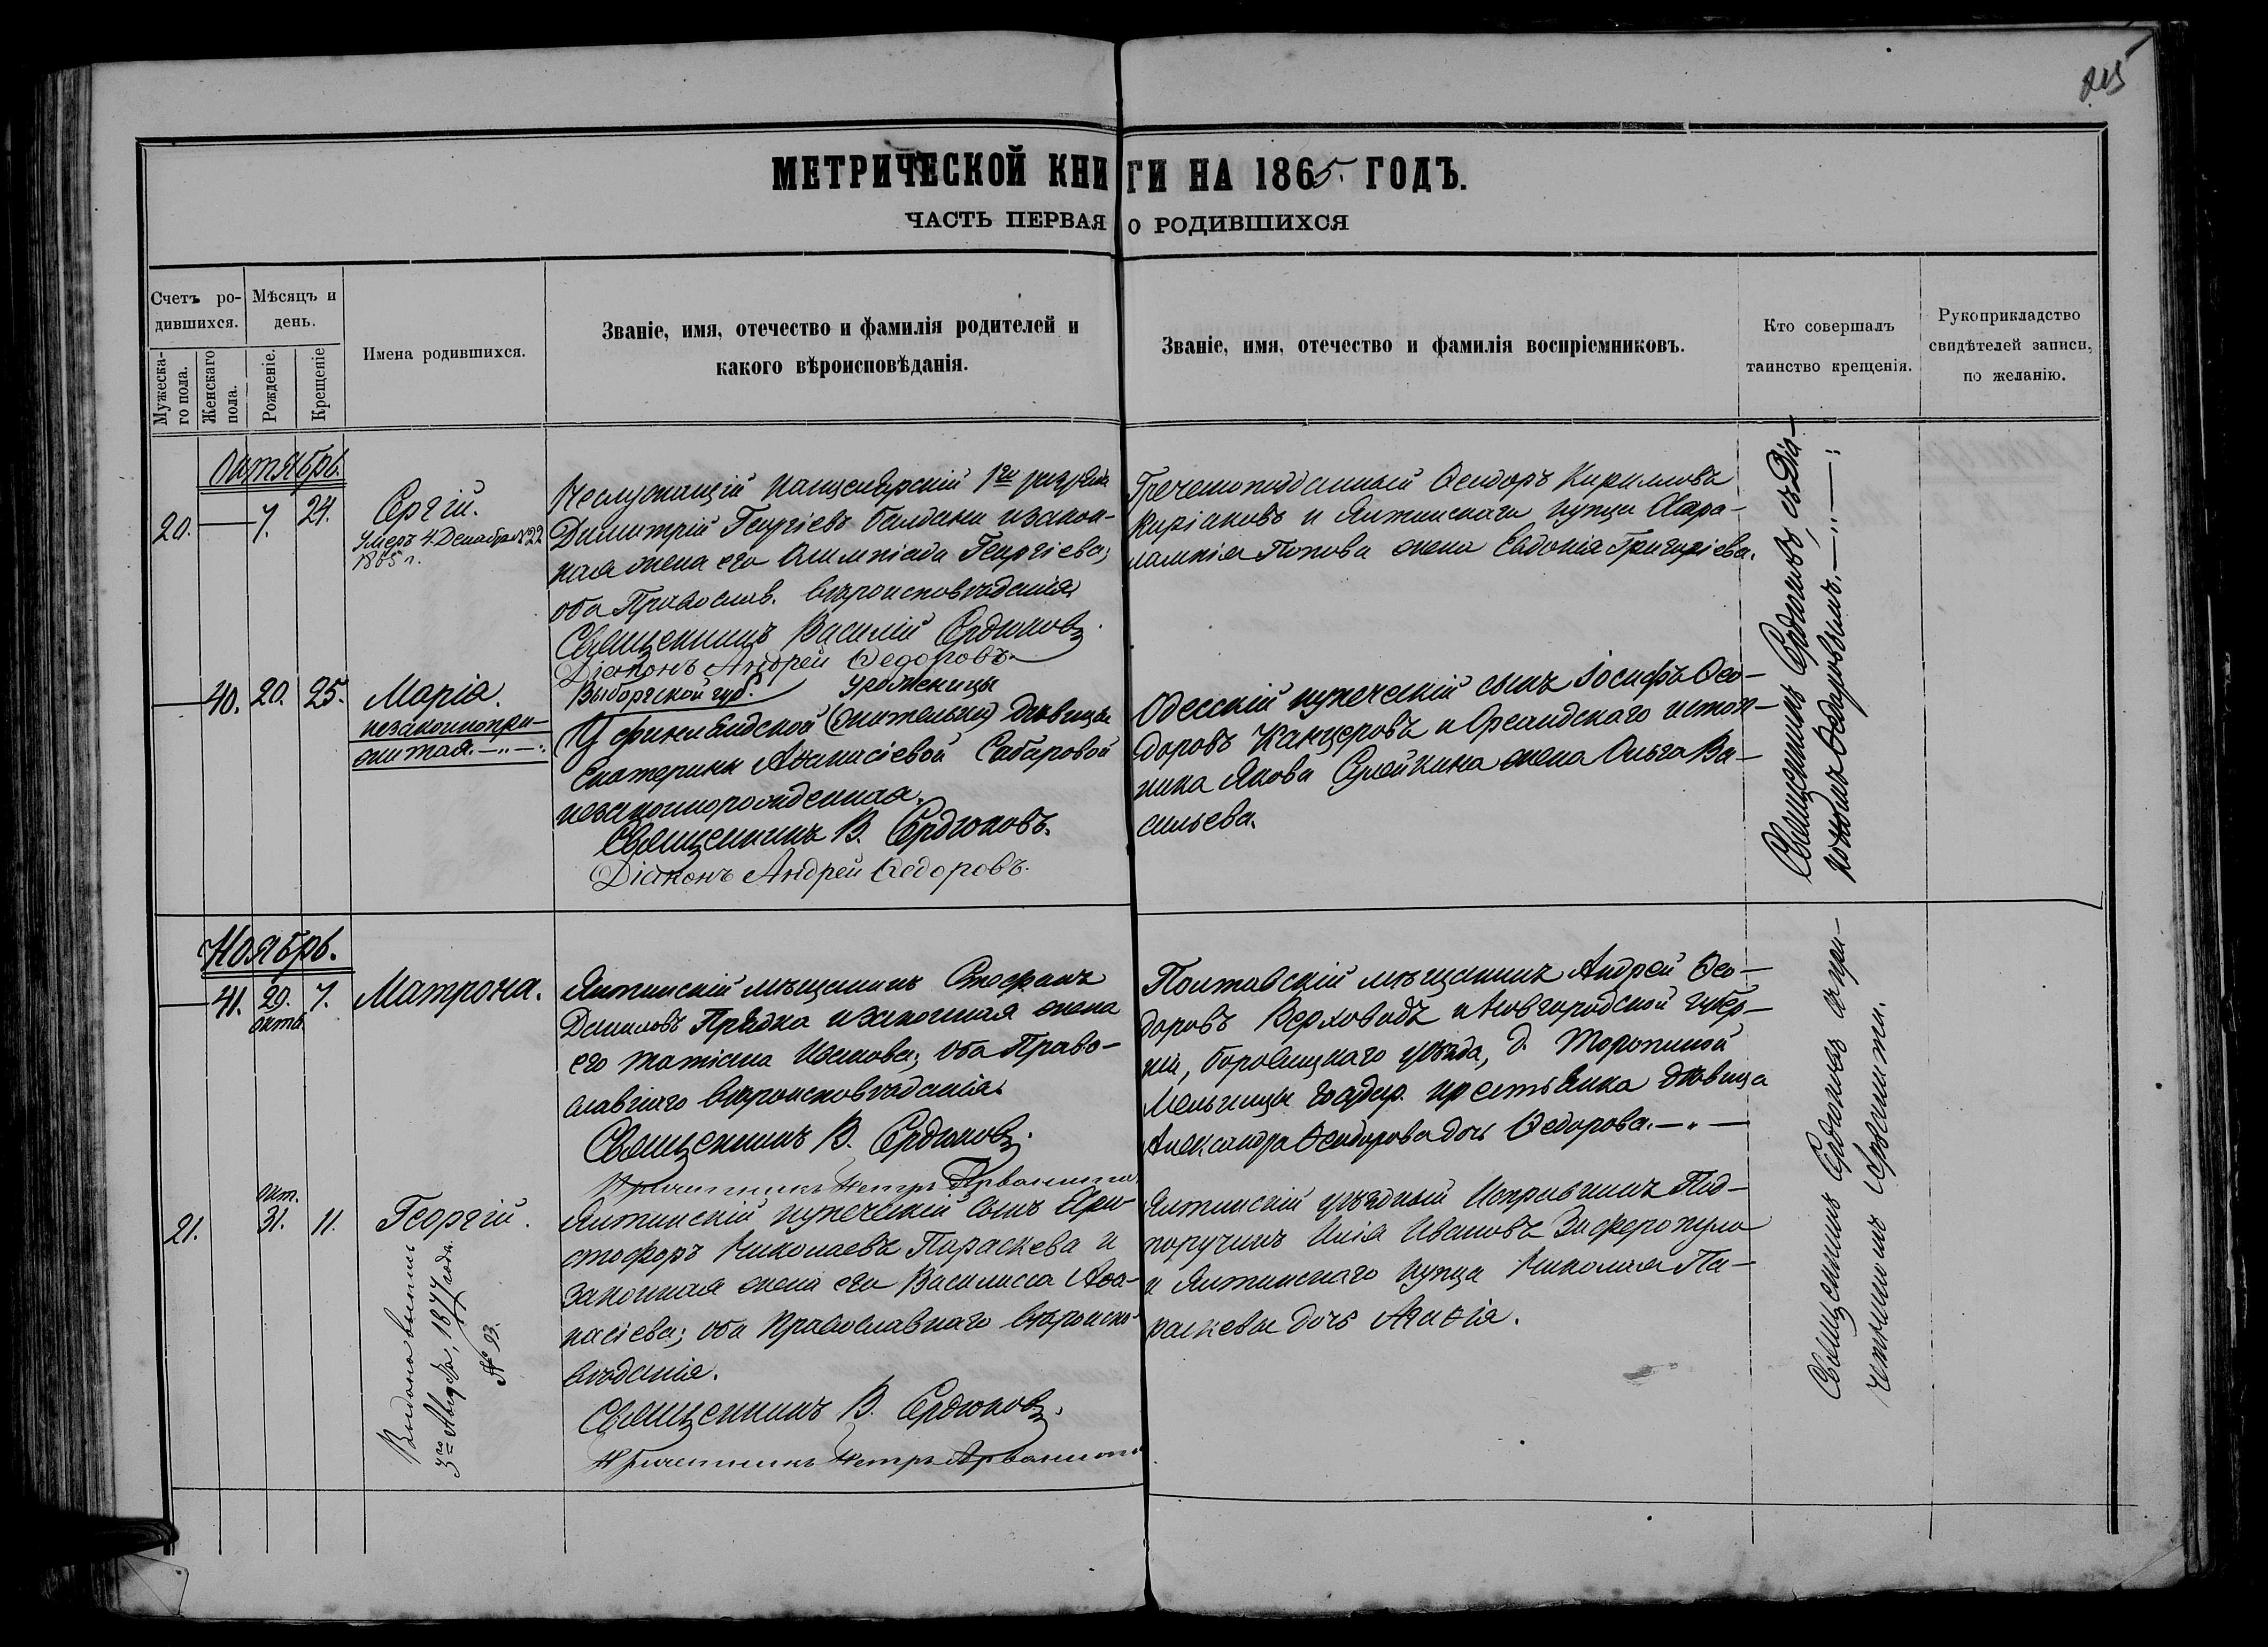 215
МЕТРИЧЕСКОЙ КНИГИ НА 1865. ГОДЪ.
ЧАСТЬ ПЕРВАЯ О РОДИВШИХСЯ
Счетъ ро-
дившихся.
Мужеска-
го пола.
Женскаго
пола.
Мѣсяцъ и
день.
Рожденіе.
Крещеніе
Имена родившихся.
Званіе, имя, отечество и фамилія родителей и
какого вѣроисповѣданія.
Званіе, имя, отечество и фамилія воспріемниковъ.
Кто совершалъ
таинство крещенія.
Рукоприкладство
свидѣтелей записи,
по желанію.
Октябрь.
20. — 7. 24.
Сергій.
Умеръ 4. Декабря №22
1865 г.
Неслужащій канцелярскій 1го разряда
Димитрій Георгіевъ Балдани и закон-
ная жена его Олимпіада Георгіева;
оба Православ. вѣроисповѣданія
Священникъ Василій Сердюковъ.
Діаконъ Андрей Ѳедоровъ.
Греческоподданный Ѳеодоръ Кириловъ
Киріаковъ и Ялтинскаго купца Хара-
лампія Попова жена Евдокія Григоріева.
— 40. 20. 25.
Марія.
незаконнопри-
житая.
Выборгской губ. уроженицы
У финляндской (жительки) дѣвицы
Екатерины Аѳанасіевой Сабаровой
незаконнорожденная.
Священникъ В. Сердюковъ.
Діаконъ Андрей Ѳедоровъ.
Одесскій купеческій сынъ Іосифъ Ѳео-
доровъ Канцеровъ и Ореандскаго истоп-
ника Якова Сулейкина жена Ольга Ва-
сильева.
Священникъ Сердюковъ, съ Діа-
кономъ Ѳедоровымъ.
Ноябрь.
— 41. 29. 7.
окт.
Матрона.
Ялтинскій мѣщанинъ Стефанъ
Даниловъ Прядка и законная жена
его Татіана Иванова; оба Право-
славнаго вѣроисповѣданія.
Священникъ В. Сердюковъ.
Причетникъ Петръ Арванити
Полтавскій мѣщанинъ Андрей Ѳео-
доровъ Верховодъ и Новгородской губер-
ніи, Боровицкаго уѣзда, д. Торопиной
Мельницы крестьянка дѣвица
Александра Ѳеодорова дочь Ѳедорова.
окт.
21. 31. 11.
Георгій.
Выдана выпись
3го Августа, 1877 года.
№ 93.
Ялтинскій купеческій сынъ Хри-
стофоръ Николаевъ Параскева и
законная жена его Василисса Аѳа-
насіева; оба Православнаго вѣроиспо-
вѣданія.
Священникъ В. Сердюковъ.
Причетникъ Петръ Арванити
Ялтинскій уѣздный Исправникъ Под-
поручикъ Илія Ивановъ Зафеropуло
и Ялтинскаго купца Николая Па-
раскевы дочь Агаѳія.
Священникъ Сердюковъ съ при-
четникомъ Арванити.